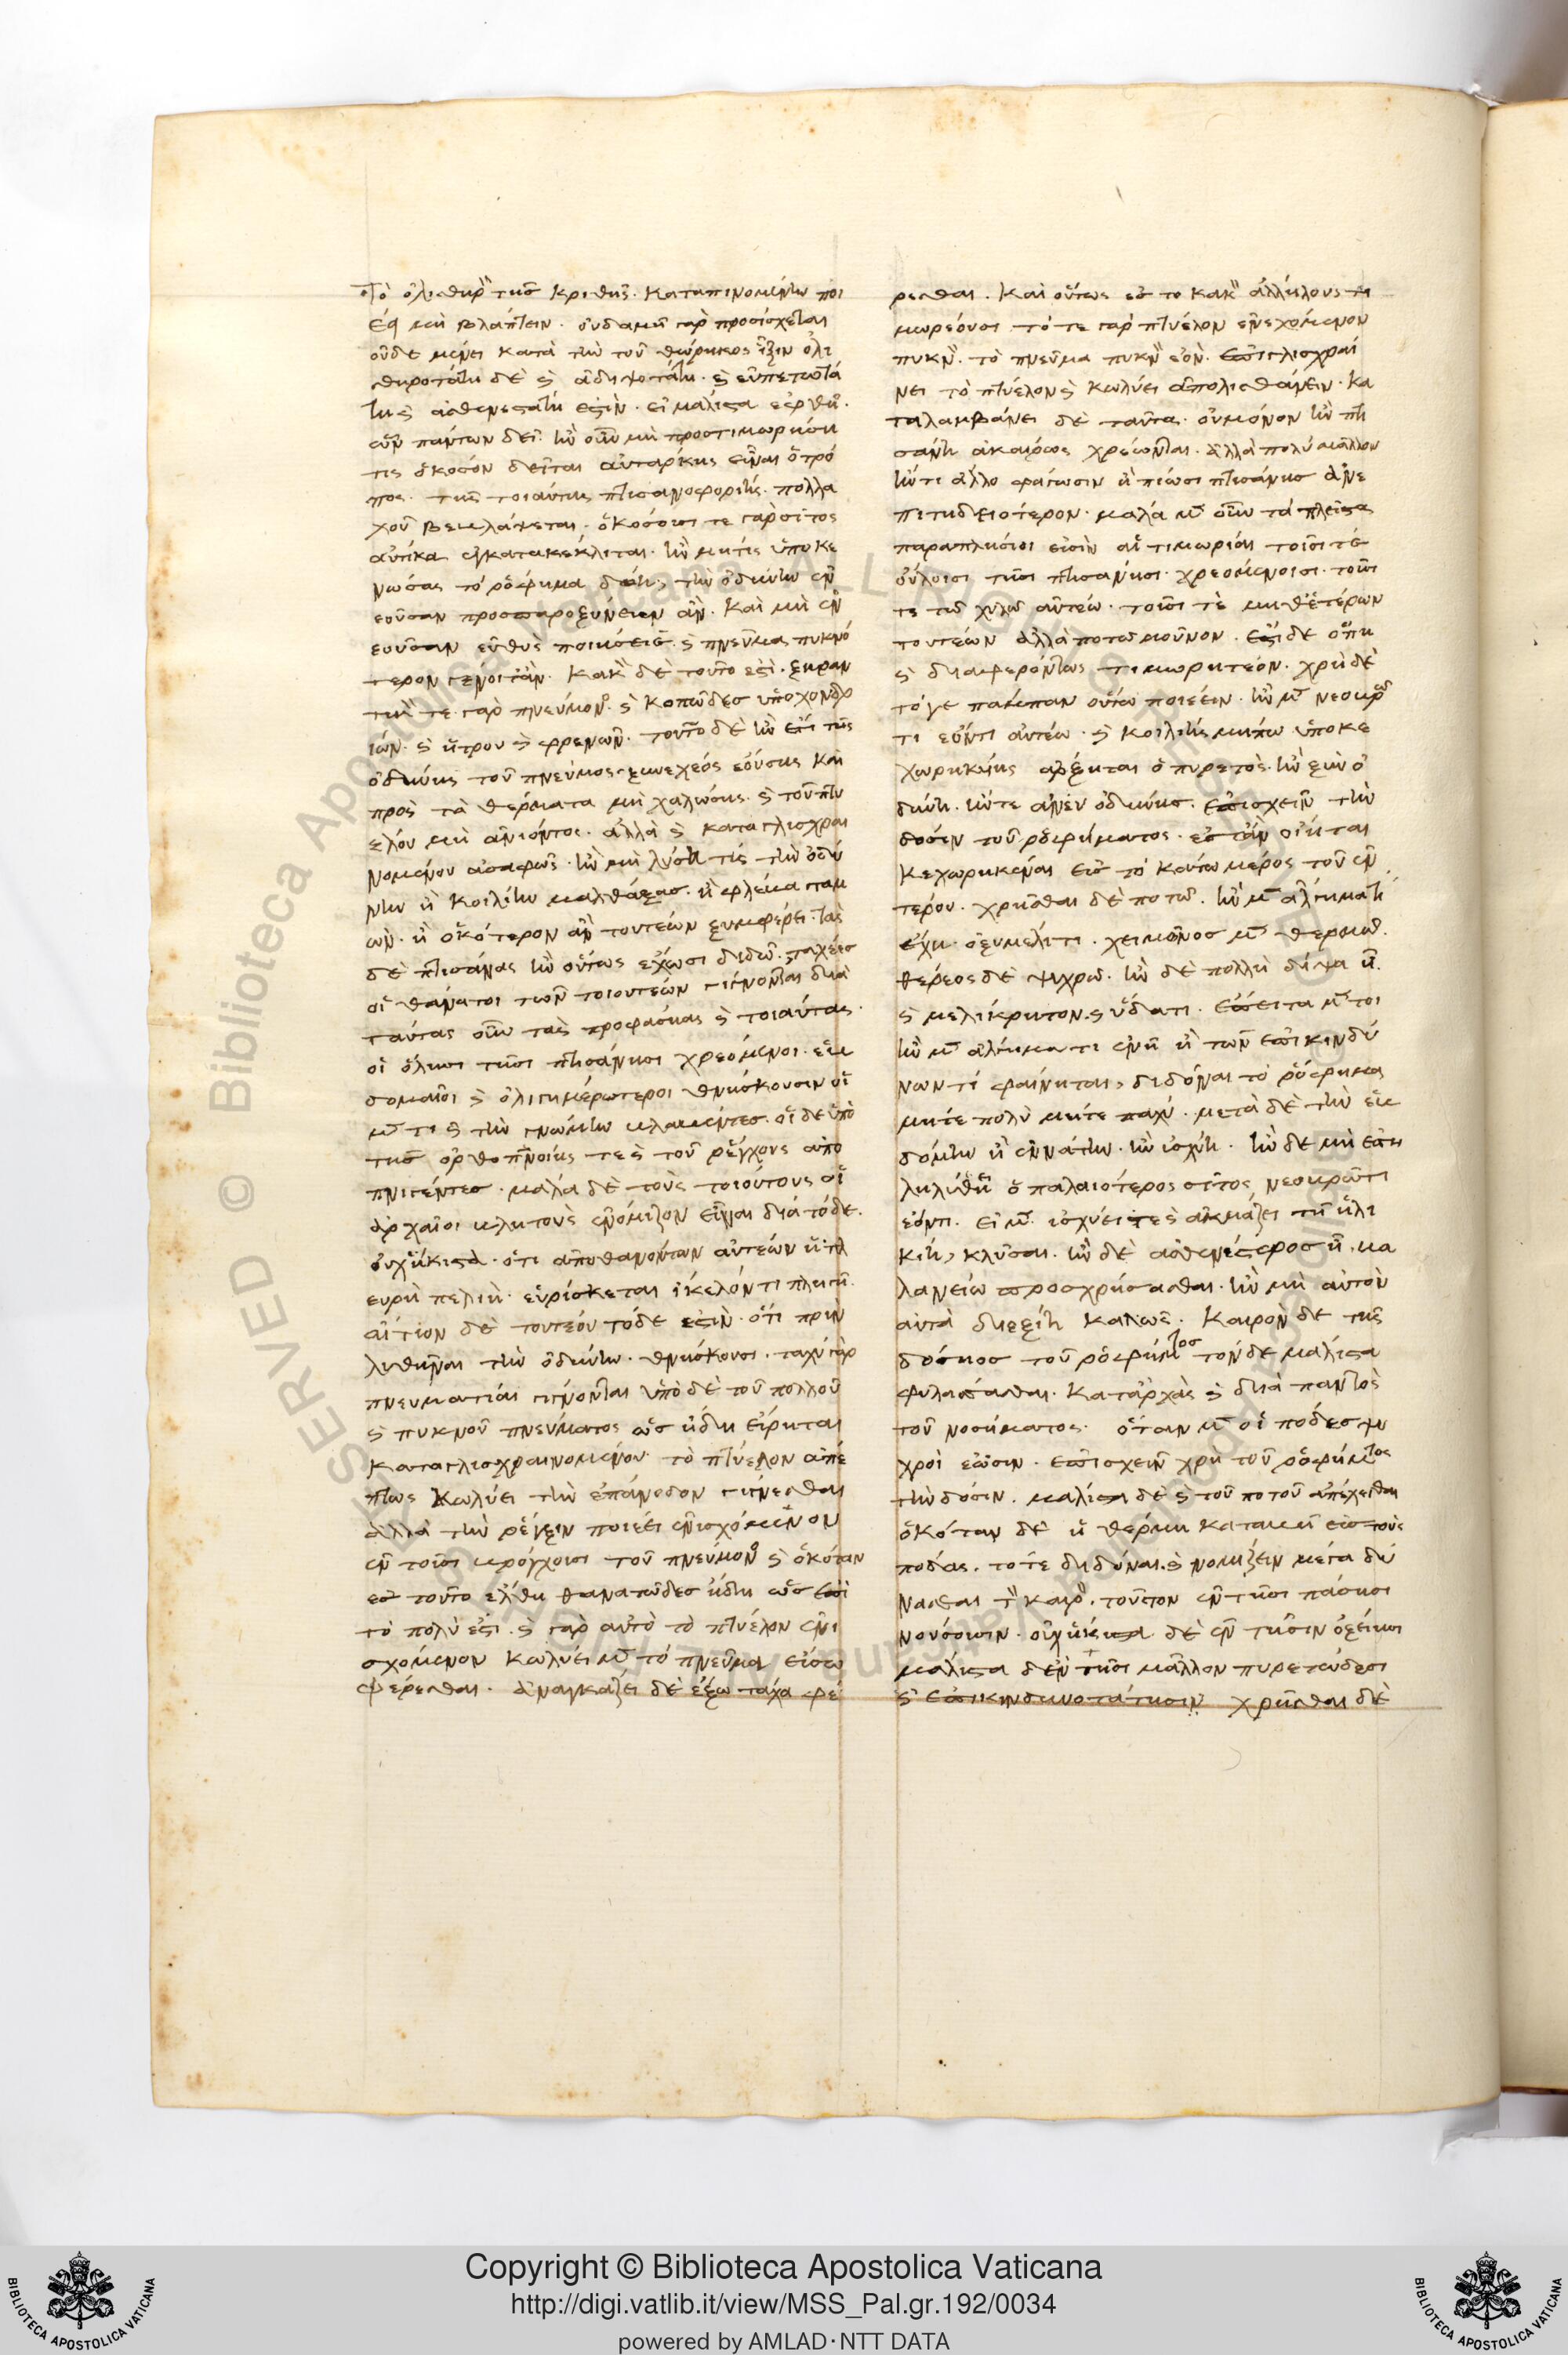 τὸ ὀλισθηρὸν τῆς κριθῆς. καταπινομένην ποι
έει μὴ βλάπτειν. οὐδαμῆ γὰρ προσίσχεται
οὐδὲ μένει κατὰ τὴν τοῦ θώρηκος ἵξιν ὀλι
θηροτάτη δὲ καὶ ἀδιψοτάτη. καὶ εὐπεπτοτά
τη καὶ ἀσθενεστάτη ἐστὶν. εἰ μάλιστα ἑφθῆ.
ὧν πάντων δεῖ. ἢν οὖν μὴ προστιμωρήση
τις ὁκόσον δεῖται αὐτάρκης εἶναι ὁ τρό
πος. τῆς τοιαύτης πτισανορροφίης. πολλα
χοῦ βεβλάψεται. ὁκόσοισί τε γὰρ σῖτος
αὐτίκα ἐγκατακέκλιται. ἢν μή τις ὑποκε
νώσας τὸ ῥόφημα δοίη, τὴν ὀδύνην ἐν
εοῦσαν προσπαροξύνειεν ἂν. καὶ μὴ ἐν
εοῦσαν εὐθὺς ποιήσειε. καὶ πνεῦμα πυκνό
τερον γένοιτ' ἂν. κακὸν δὲ τοῦτο ἐστὶ. ξηραν
τικόν τε γὰρ πνεύμονος. καὶ κοπῶδες ὑποχονδρ
ίων. καὶ ἤτρου καὶ φρενῶν. τοῦτο δὲ ἢν ἔτι τῆς
ὀδύνης τοῦ πνεύμος ξυνεχεός ἐούσης καὶ
πρὸς τὰ θερμάσματα μὴ χαλώσης. καὶ τοῦ πτυ
έλου μὴ ἀνιόντος. ἀλλὰ καὶ καταγλισχραι
νομένου ἀσαφῶς. ἢν μὴ λύση τίς τὴν ὀδύ
νην ἢ κοιλίην μαλθάξας. ἢ φλέβα ταμ
ὼν. ἢ ὁκότερον ἂν τουτέων ξυμφέρει. τὰς
δὲ πτισάνας ἢν οὕτως ἔχωσι διδῶ. ταχέες
οἱ θάνατοι τῶν τοιουτέων γίγνονται διὰ
ταύτας οὖν τὰς προφάσιας καὶ τοιαύτας.
οἱ ὅλησι τῆσι πτισάνησι χρεόμενοι. ἑβ
δομαῖοι καὶ ὀλιγημερώτεροι θνήσκουσιν οἱ
μέν τι καὶ τὴν γνώμην βλαβέντες. οἱ δὲ ὑπὸ
τῆς ὀρθοπνοίης τε καὶ τοῦ ῥέγχους ἀπο
πνιγέντες. μάλα δὲ τοὺς τοιούτους οἱ
ἀρχαῖοι βλητοὺς ἐνόμιζον εἶναι διὰ τόδε.
οὐχ ἥκιστα. ὅτι ἀποθανόντων αὐτέων ἡ πλ
ευρὴ πελιὴ. εὑρίσκεται ἴκελόν τι πληγῆ.
αἴτιον δὲ τουτέου τόδε ἐστὶν. ὅτι πρὶν
λυθῆναι τὴν ὀδύνην. θνήσκουσι. ταχὺ γὰρ
πνευματίαι γίνονται ὑπὸ δὲ τοῦ πολλοῦ
καὶ πυκνοῦ πνεύματος ὡς ἤδη εἴρηται
καταγλισχραινομένον τὸ πτύελον ἀπέ
πτως κωλύει τὴν ἐπάνοδον γίγνεσθαι
ἀλλὰ τὴν ῥέγξιν ποιέει ἐνισχόμενον
ἐν τοῖσι βρόγχοισι τοῦ πνεύμονος καὶ ὁκόταν
ἐς τοῦτο ἔλθη θανατῶδες ἤδη ὡς ἐπὶ
τὸ πολὺ ἐστὶ. καὶ γὰρ αὐτὸ τὸ πτύελον ἐνι
σχόμενον κωλύει μὲν τὸ πνεῦμα εἴσω
φέρεσθαι. ἀναγκάζει δὲ ἔξω ταχα φέ
ρεσθαι. καὶ οὕτως ἐς το κακὸν ἀλλήλους τι
μωρέουσι τό τε γὰρ πτύελον ἐνεχόμενον
πυκνὸν. τὸ πνεῦμα πυκνὸν ἐὸν. ἐπιγλισχραί
νει τὸ πτύελον καὶ κωλύει ἀπολισθάνειν. κα
ταλαμβάνει δὲ ταῦτα. οὐ μόνον ἢν πτι
σάνη ἀκαίρως χρέωνται. ἀλλὰ πολὺ μᾶλλον
ἤν τι ἄλλο φάγωσιν ἢ πίωσι πτισάνης ἀνε
πιτηδειότερον. μάλα μὲν οὖν τὰ πλεῖστα
παραπλήσιοι εἰσὶν αἱ τιμωρίαι τοῖσί τέ
οὔλοισι τῆσι πτισάνησι. χρεομένοισι. τοῖσί
τε τῷ χυλῷ αὐτέω. τοῖσι τὲ μηθ' ἑτέρων
τουτέων ἀλλὰ ποτῷ μοῦνον. ἔστι δὲ ὅπη
καὶ διαφερόντως τιμωρητέον. χρὴ δὲ
τό γε πάμπαν οὕτω ποιέειν. ἢν μὲν νεοβρῶ
τι ἐόντι αὐτέω. καὶ κοιλίης μήπω ὑποκε
χωρηκυίης ἄρξηται ὁ πυρετὸς. ἢν ξὺν ὀ
δύνη. ἤν τε ἄνευ ὀδύνης. ἐπισχεῖν τὴν
δόσιν τοῦ ῥοφήματος. ἔστ' ἂν οἴηται
κεχωρηκέναι εἰς τὸ κάτω μέρος τοῦ ἐν
τέρου. χρῆσθαι δὲ ποτῷ. ἢν μὲν ἄλγημά τι
ἔχη. ὀξυμέλιτι. χειμῶνος μὲν θερμῷ.
θέρεος δὲ ψυχρῷ. ἢν δὲ πολλὴ δίψα ἦ.
καὶ μελίκρητον. καὶ ὕδατι. ἔπειτα μέν τοι
ἢν μὲν ἄλγημα τι ἐνῆ ἢ τῶν ἐπικινδύ
νων τί φαίνηται, διδόναι τὸ ῥόφημα
μήτε πολὺ μήτε παχύ. μετὰ δὲ τὴν ἑβ
δόμην ἢ ἐννάτην. ἢν ἰσχύη. ἢν δὲ μὴ ὑπε
ληλύθῆ ὁ παλαιότερος σῖτος νεοβρῶτι
ἐόντι. εἰ μὲν ἰσχύει τε καὶ ἀκμάζει τῆ ἡλι
κίη, κλύσαι. ἢν δὲ ἀσθενέστερος ἦ. βα
λανείω προσχρήσασθαι. ἢν μὴ αὐτὸν
αὐτὰ διεξίη καλῶς. καιρὸν δὲ τῆς
δόσιος τοῦ ῥοφήματος τόνδε μάλιστα
φυλάσσεσθαι. κατ' ἀρχὰς καὶ διὰ παντὸς
τοῦ νοσήματος. ὅταν μὲν οἱ πόδες ψυ
χροὶ ἐῶσιν. ἐπισχεῖν χρὴ τοῦ ῥοφήματος
τὴν δόσιν. μάλιστα δὲ καὶ τοῦ ποτοῦ ἀπέχεσθαι
ὁκόταν δὲ ἡ θέρμη καταβῆ εἰς τοὺς
πόδας. τότε διδόναι. καὶ νομίζειν μέγα δύ
νασθαι τὸν καιρὸν. τοῦτον ἐν τῆσι πάσησι
νούσοισιν. οὐχ ἥκιστα δὲ ἐν τῆσιν ὀξείησι
μάλιστα δ' ἐν τῆσι μᾶλλον πυρετώδεσι
καὶ ἐπικινδυνοτάτησιν χρῆσθαι δὲ
Copyright © Biblioteca Apostolica Vaticana
http://digi.vatlib.it/view/MSS_Pal.gr.192/0034
powered by AMLAD·NTT DATA